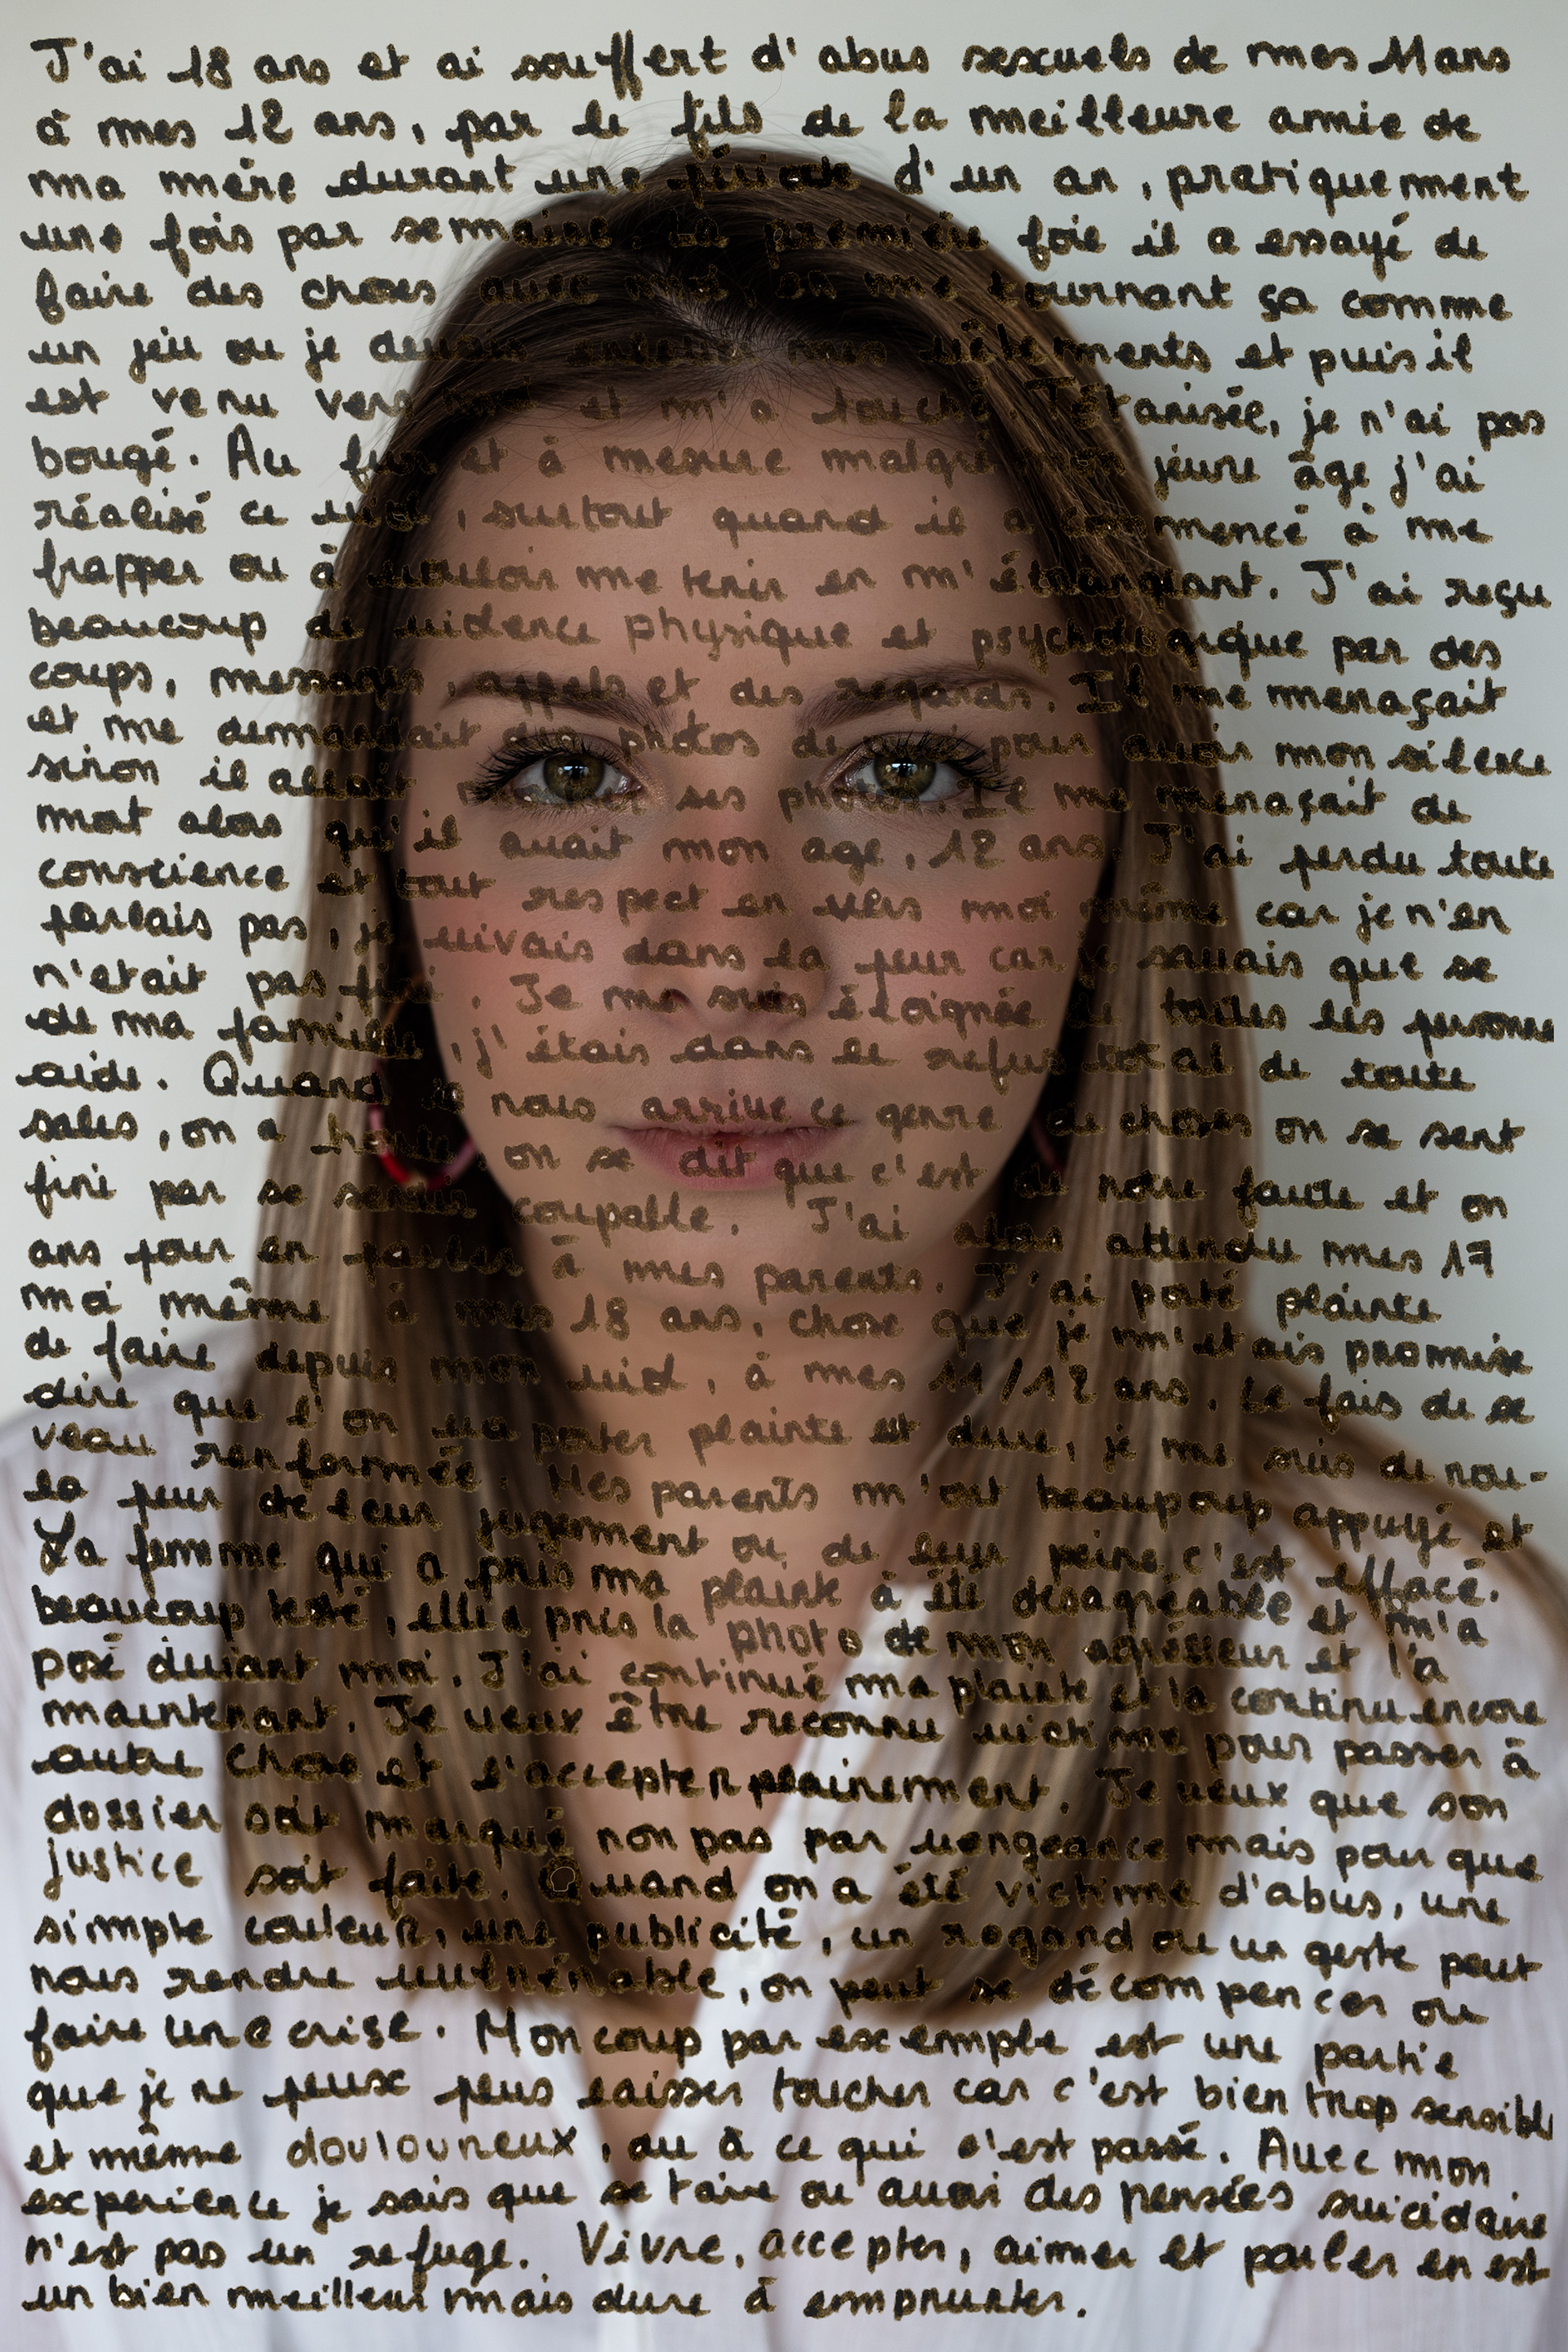 J'ai 18 ans et ai souffert d'abus sexuels de mes 11ans
à mes 12 ans, par le fils de la meilleure amie de
ma mère durant une période d'un an, pratiquement
une fois par semaine. La première fois il a essayé de
faire des choses avec moi, en me tournant ça comme
un jeu ou je devais enlever mes vêtements et puis il
est venu vers moi et m'a touché. Tétanisée, je n'ai pas
bougé. Au fur et à mesure malgré mon jeune âge j'ai
réalisé ce viol, surtout quand il a commencé à me
frapper ou à vouloir me tenir en m'étrangeant. J'ai reçu
beaucoup de violence physique et psychologique par des
coups, messages, appels et des regards. Il me menaçait
et me demandait des photos de moi pour avoir mon silence
sinon il allait ses photos. Il me menaçait de
mort alors qu'il avait mon age, 12 ans. J'ai perdu toute
conscience et tout respect en vers moi même car je n'en
parlais pas, je vivais dans la peur car je savais que se
n'etait pas fini. Je me suis éloignée de toutes les personnes
de ma famille, j'étais dans le refus total de toute
aide. Quand il nous arrive ce genre de choses on se sent
sales, on a honte, on se dit que c'est de notre faute et on
fini par se sentir coupable. J'ai alors attendu mes 17
ans pour en parler à mes parents. J'ai porté plainte
moi même à mes 18 ans, chose que je m'etais promise
de faire depuis mon viol, à mes 11/12 ans. Le fais de se
dire que l'on va porter plainte est dure, je me suis de nou-
veau renformée. Mes parents m'ont beaupoup appuyé et
la peur de leur jugement ou de leur peine c'est effacé.
La femme qui a pris ma plainte à été désagréable et m'a
beaucoup testé, elle a pris la photo de mon agresseur et l'a
posé devant moi. J'ai continué ma plainte et la continu encore
maintenant. Je veux être reconnu victime pour passer à
autre chose et l'accepter plainement. Je veux que son
dossier soit marqué non pas par vengeance mais pour que
justice soit faite. Quand on a été victime d'abus, une
simple couleur, une publicité, un regard ou un geste peut
nous rendre vulnérable, on peut se décompencer ou
faire une crise. Mon coup par exemple est une partie
que je ne peux peus laisser toucher car c'est bien trop sensible
et même douloureux, du à ce qui s'est passé. Avec mon
experience je sais que se taire ou avoir des pensées suicidaire
n'est pas un refuge. Vivre, accepter, aimer et parler en est
un bien meilleur mais dure à emprunter.